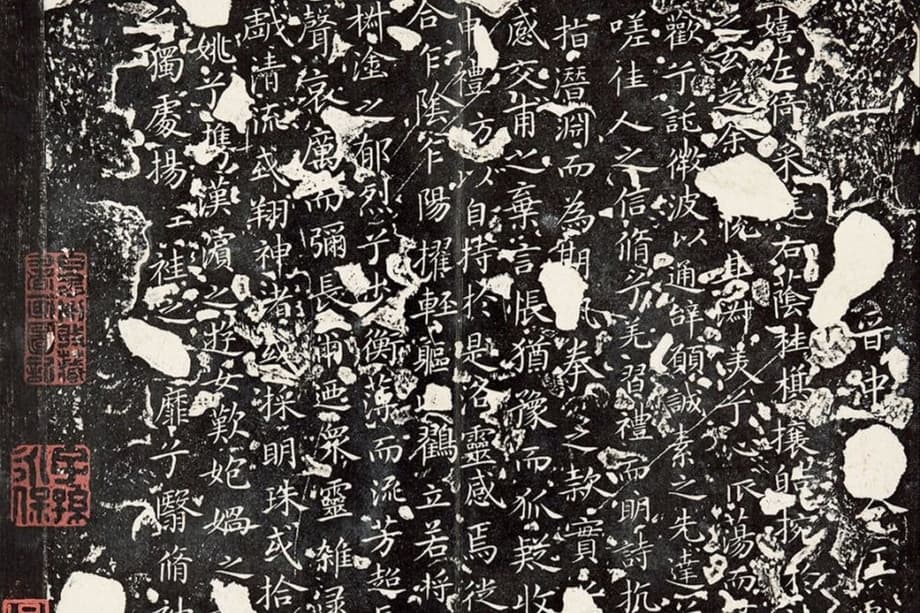 晉中令王
嬉左倚采旄右蔭桂旗攘皓捥於
之玄芝余悅其淑美兮心振蕩而
歡兮託微波以通辭願誠素之先達
嗟佳人之信脩兮羌習禮而明詩抗
指潛淵而為期執拳之款實
感交甫之棄言悵猶豫而狐疑收
申禮防以自持於是洛靈感焉徙
合乍陰乍陽擢輕軀以鶴立若將
樹塗之郁烈兮步衡薄而流芳超
聲哀厲而彌長爾迺眾靈雜遝
戲清流或翔神渚或採明珠或拾
姚兮攜漢濱之遊女歎媧之
之獨處揚袿之靡兮翳脩袖
子孫永保